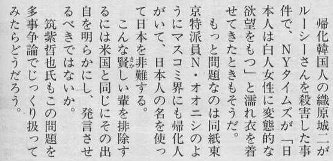 帰化韓国人の織原城二が
ルーシーさんを殺害した事
件で、NYタイムズが「日
本人は白人女性に変態的な
欲望をもつ」と濡れ衣を着
せてきたときもそうだ。
もっと問題なのは同紙東
京特派員N・オオニシのよ
うにマスコミ界にも帰化人
がいて、日本人の名を使っ
て日本を非難する。
こんな賢しい輩を排除す
るには米国と同じにその出
自を明らかにし、発言させ
るべきではないか。
筑紫哲也氏もこの問題を
多事争論でじっくり扱って
みたらどうだろう。